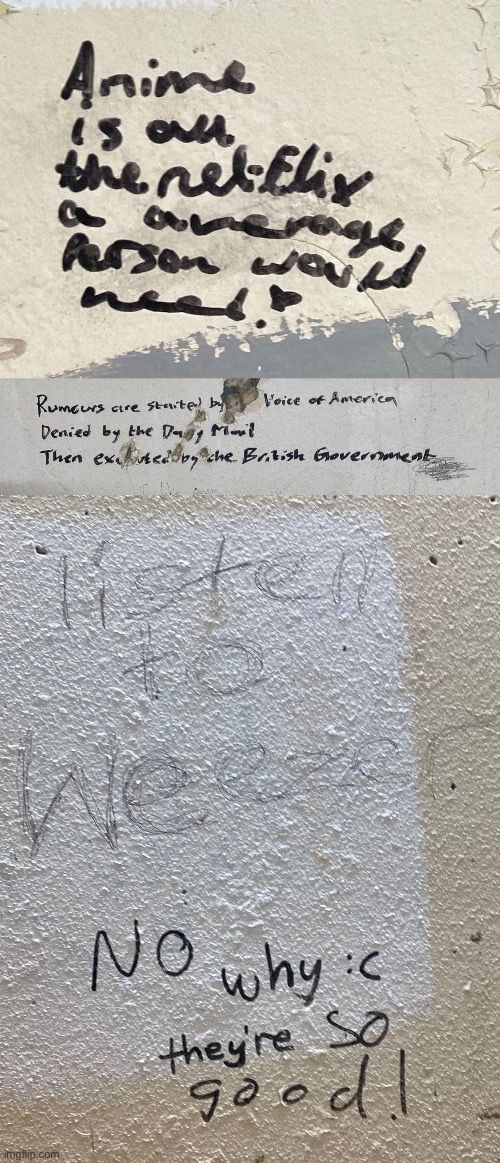 Anime
is all
the netflix
a average
Person would
need!
Rumours are started by Voice of America
Denied by the Daily Mail
Then executed by the British Government
listen
to
Weezer
NO why :c
they're so
good!
imgflip.com